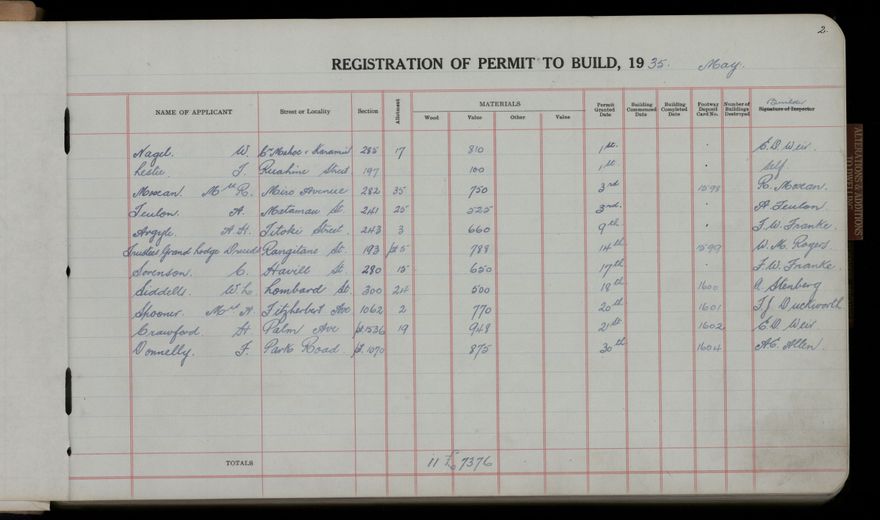 2.
REGISTRATION OF PERMIT TO BUILD, 1935. May.
NAME OF APPLICANT Street or Locality Section Allotment MATERIALS Wood Value Other Value Permit Granted Date Building Commenced Date Building Completed Date Footway Deposit Card No. Number of Buildings Destroyed Builder Signature of Inspector
Nagel. W. Cr Mahoe & Karamu 285 17 810 1st. E.D. Weir.
Leslie J. Ruahine Street 197 100 1st. Self.
Moxean. Mrs R. Miro Avenue 282 35 750 3rd 1598 R. Moxean.
Fenton. A. Matamau St. 241 25 525 3rd. A. Fenton.
Argyle. A.H. Titoki Street. 243 3 660 9th F.W. Franke.
Trustees Grand Lodge Druids Rangitane St. 193 pt 5 788 14th 1599 W.M. Rogers
Sorenson. C. Havill St. 280 15 650 17th F.W. Franke.
Siddells. W L Lombard St. 300 24 500 18th 1600 A. Stenberg
Spooner. Mrs A. Fitzherbert Ave 1062 2 770 20th 1601 T.J. Duckworth
Crawford. H. Palm Ave pt 1536 19 948 21st 1602 E.D. Weir
Donnelly. F. Park Road. pt. 1070 875 30th 1604 A.E. Allen.
TOTALS 11 £7376
ALTERATIONS & ADDITIONS
TO DWELLING